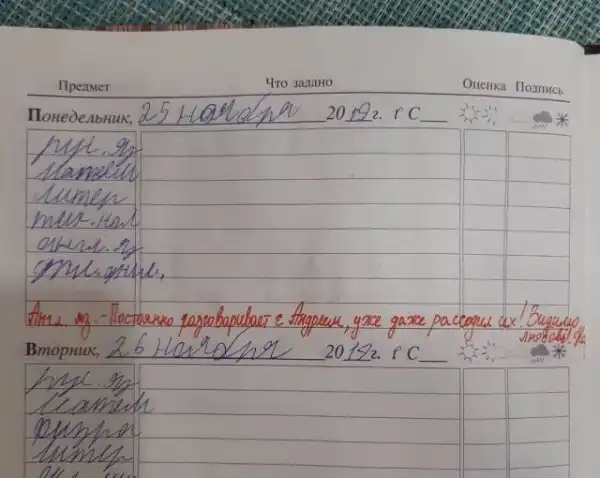 Предмет Что задано Оценка Подпись
Понедельник, 25 ноября 2019г. t° C
рус. яз
матем
литер
техн
англ. яз
Англ. яз. - Постоянно разговаривает с Андреем, уже даже рассадил их! Видимо,
любовь!
Вторник, 26 ноября 2019г. t° C
рус. яз
матем
литер